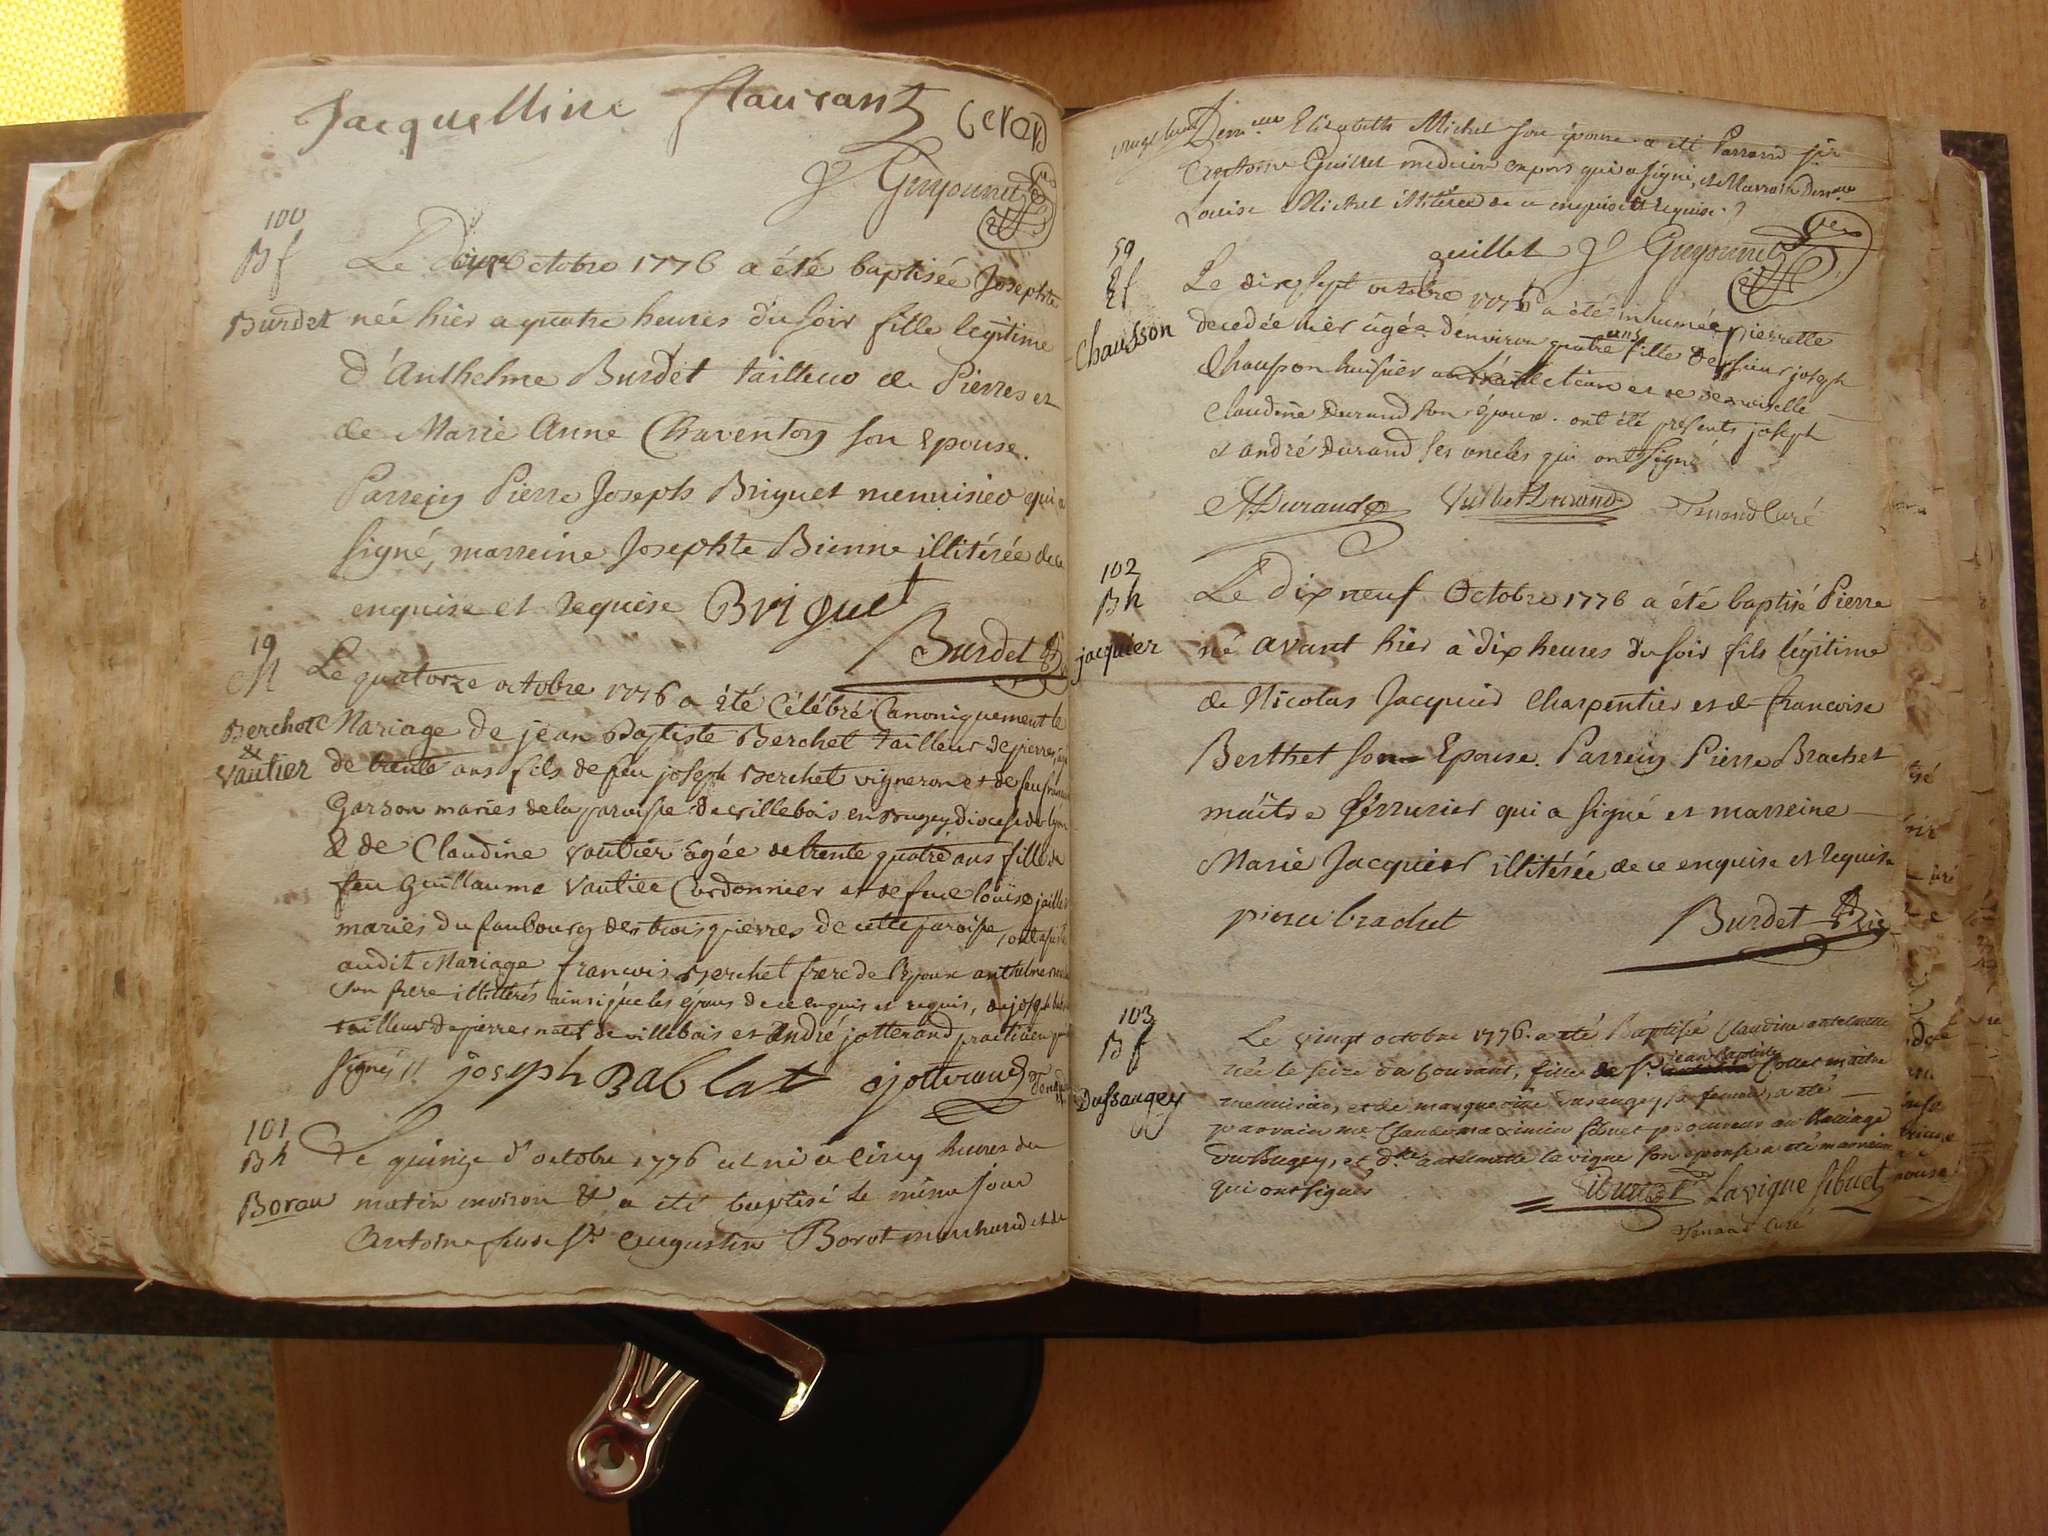 Jacquelline flaurant
Guyounet
100
Bf
Burdet
Le Octobre 1776 a été baptisée Josephte
née hier a quatre heures du soir fille legitime
d'Anthelme Burdet tailleur de Pierres et
de Marie Anne Chaventon son Epouse.
Parrein Pierre Joseph Briguet menuisier qui a
signé, marreine Josephte Bienne illitérée de ce
enquise et requise Briguet
Burdet
19
M
Berchet
&
Vautier
Le quatorze octobre 1776 a été Célébré Canoniquement le
Mariage de jean Baptiste Berchet tailleur de pierres
de trente ans fils de feu joseph Berchet vigneron et de feu
Garson mariés de la paroisse de villebois en Bugey Diocese de Lyon
& de Claudine Vautier âgée de trente quatre ans fille de
feu Guillaume Vautier Cordonnier et de feue louise
mariés du faubourg des trois pierres de cette paroisse,
audit Mariage francois Berchet frere de l'Epoux anthelme
son frere illitterés ainsi que les époux de ce enquis et requis, de joseph
tailleur de pierres natif de villebois et André jotterand practicien
signés // joseph Bablat jotterand
101
Bh
Borau
Le quinze d'octobre 1776 est né a cinq heures du
matin environ & a eté baptisé le même jour
Antoine fils de Sr. Augustin Borot marchand et de
Demelle Elizabeth Michel son épouse a été Parrain sr
Antoine Guillet medecin qui a signé, et Marraine Demlle
Louise Michel illitérée de ce enquise et requise.
guillet Guyounet
59
Ef
Chausson
Le dix sept octobre 1776 a été inhumée pierrette
decedée hier âgée d'environ quatre ans fille de sieur joseph
Chausson huissier et de demoiselle
Claudine Durand son épouse. ont été presents joseph
et andré Durand ses oncles qui ont signé
A. Durand Durand Curé
102
Bh
jacquier
Le dix neuf Octobre 1776 a été baptisé Pierre
né avant hier à dix heures du soir fils légitime
de Nicolas Jacquier Charpentier et de francoise
Berthet son Epouse. Parrein Pierre Brachet
maître serrurier qui a signé et marreine
Marie Jacquier illitérée de ce enquise et requise
pierre brachet Burdet
103
Bf
Dussaugey
Le vingt octobre 1776. a été Baptisée Claudine antelmette
née le seize du Courant, fille de Sr. jean Baptiste maitre
menuisier, et de marguerite Dusaugey, sa femme, a été
parrain me. Claude maximin sibuet procureur au Bailliage
du Bugey, et dlle antelmette lavigne son épouse a été marraine
qui ont signés Sibuet Lavigne sibuet
Curé